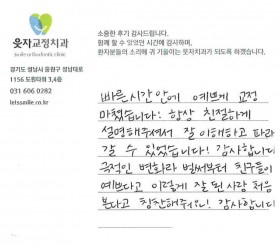 웃자교정치과
smile orthodontic clinic
경기도 성남시 중원구 성남대로
1156 도원타워 3,4층
031 606 0282
letssmile.co.kr
소중한 후기 감사드립니다.
함께 할 수 있었던 시간에 감사하며,
환자분들의 소리에 귀 기울이는 웃자치과가 되도록 하겠습니다.
빠른시간 안에 예쁘게 교정
마쳤습니다! 항상 친절하게
설명해주셔서 잘 이해하고 따라
갈 수 있었습니다! 감사합니다
극적인 변화라 벌써부터 친구들이
예쁘다고 이렇게 잘 된 사람 처음
본다고 칭찬해줘요! 감사합니다